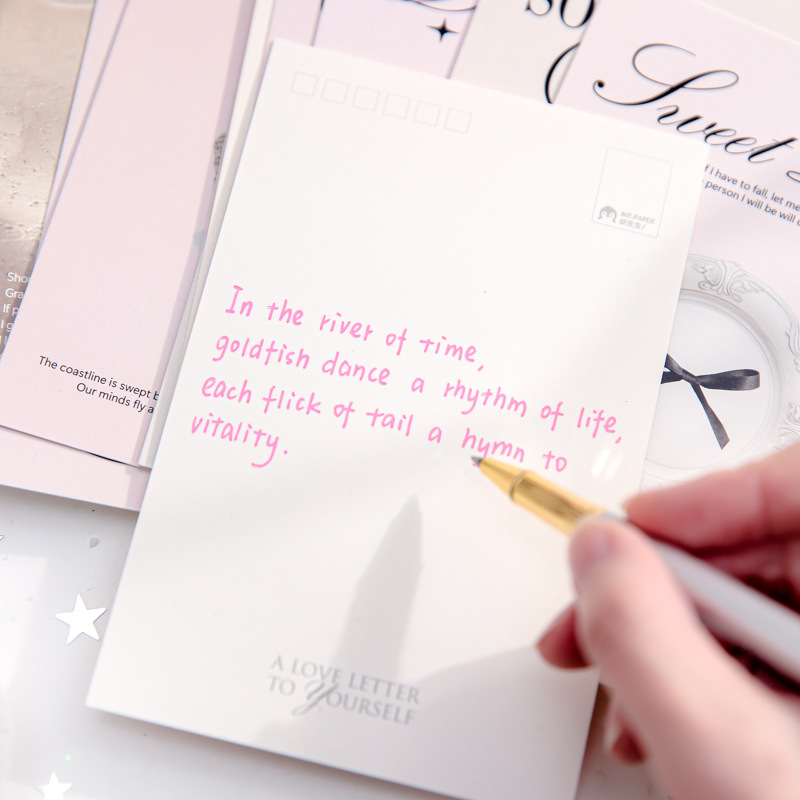 SO
Sweet
f I have to fall, let me
person I will be will
MR.PAPER
In the river of time,
goldfish dance a rhythm of life,
each flick of tail a hymn to
vitality.
The coastline is swept
Our minds fly a
A LOVE LETTER
TO YOURSELF